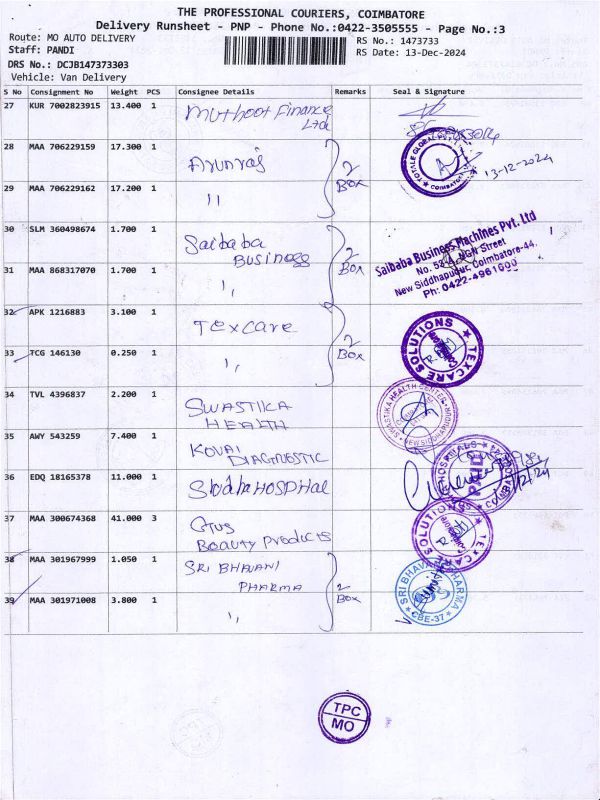 THE PROFESSIONAL COURIERS, COIMBATORE
Delivery Runsheet - PNP - Phone No.:0422-3505555 - Page No.:3
Route: MO AUTO DELIVERY
RS No.: 1473733
Staff: PANDI
RS Date: 13-Dec-2024
DRS No.: DCJB147373303
Vehicle: Van Delivery
S No Consignment No Weight PCS Consignee Details Remarks Seal & Signature
27 KUR 7002823915 13.400 1 Muthoot Finance Ltd
28 MAA 706229159 17.300 1 Arunraj 2 Box
TOTALE GLOBAL PVT LTD COIMBATORE
13-12-2024
29 MAA 706229162 17.200 1 "
30 SLM 360498674 1.700 1 Saibaba Business 2 Box
Saibaba Business Machines Pvt. Ltd
No. 521A, NGN Street
New Siddhapudur, Coimbatore-44.
Ph: 0422-4961000
31 MAA 868317070 1.700 1 "
32 APK 1216883 3.100 1 Texcare 2 Box
TEXCARE SOLUTIONS
33 TCG 146130 0.250 1 "
34 TVL 4396837 2.200 1 SWASTIKA HEALTH
SWASTIKA HEALTH CENTER NEW SIDDHAPUDUR
35 AWY 543259 7.400 1 KOVAI DIAGNOSTIC
36 EDQ 18165378 11.000 1 HOSPITAL
HOSPITALS
37 MAA 300674368 41.000 3 Beauty Products
TEXCARE SOLUTIONS
38 MAA 301967999 1.050 1 SRI BHAVANI PHARMA 2 Box
SRI BHAVANI PHARMA CBE-37
39 MAA 301971008 3.800 1 "
TPC
MO